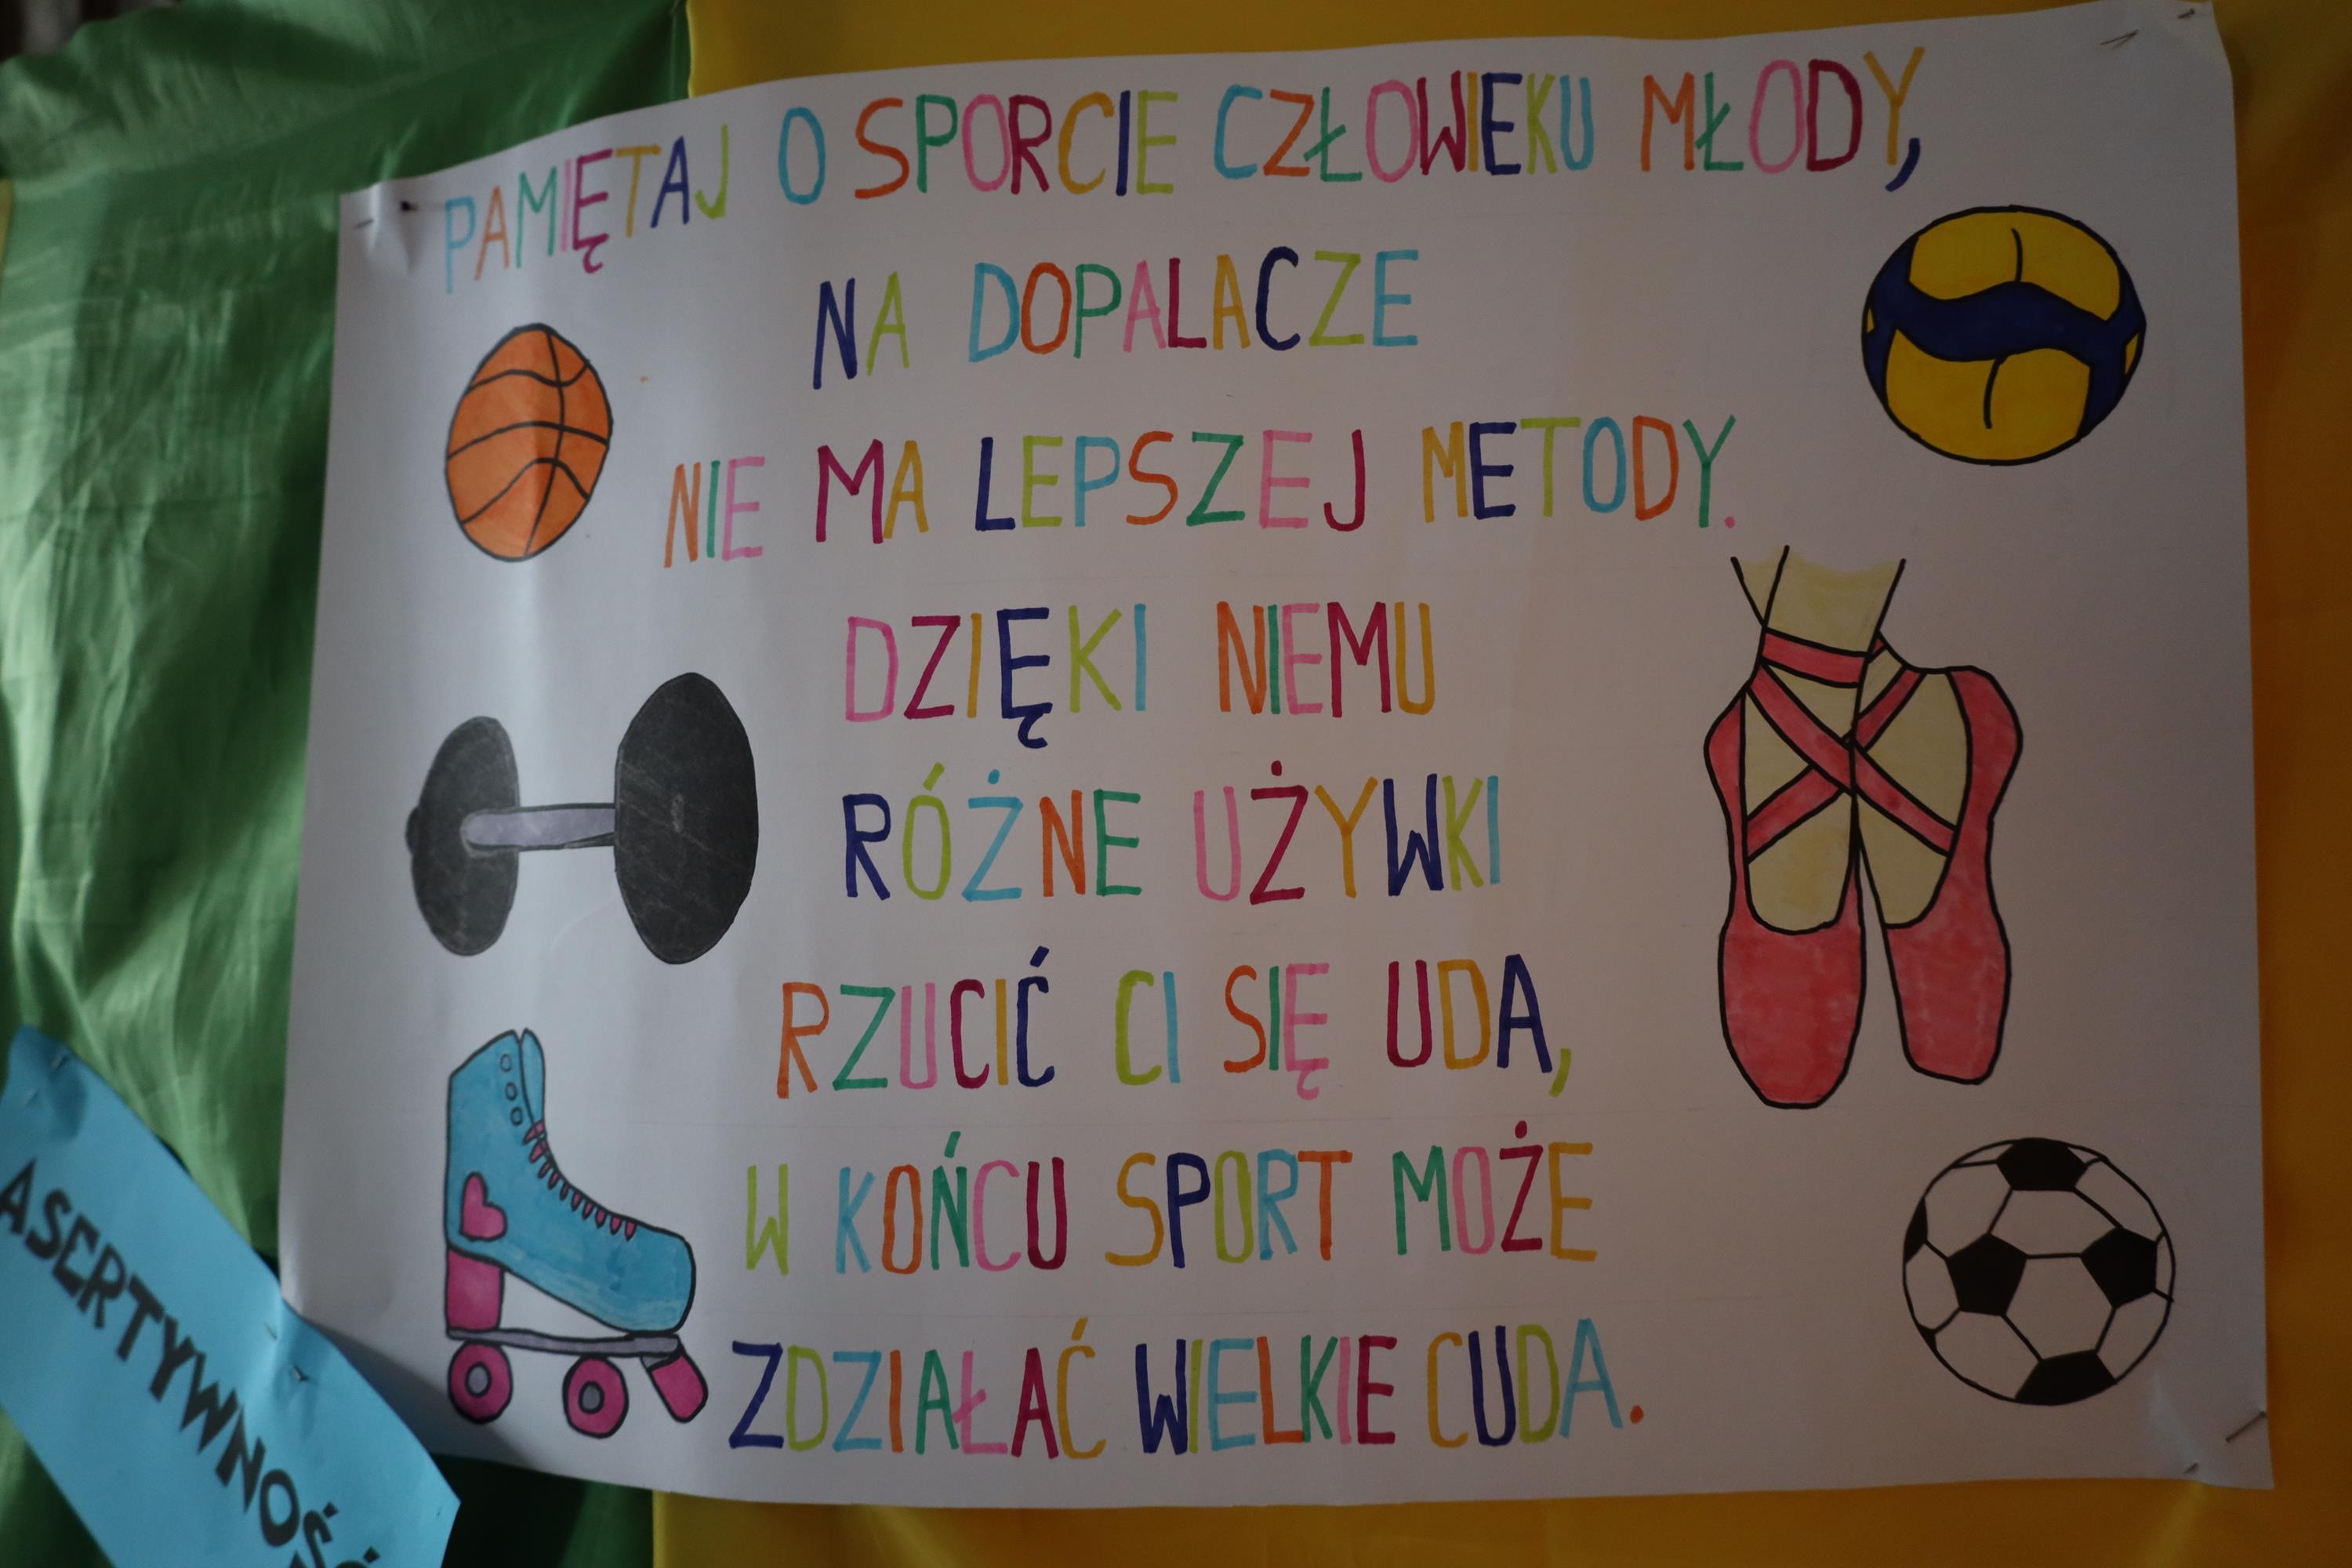 PAMIĘTAJ O SPORCIE CZŁOWIEKU MŁODY,
NA DOPALACZE
NIE MA LEPSZEJ METODY.
DZIĘKI NIEMU
RÓŻNE UŻYWKI
RZUCIĆ CI SIĘ UDA,
W KOŃCU SPORT MOŻE
ZDZIAŁAĆ WIELKIE CUDA.
ASERTYWNOŚĆ